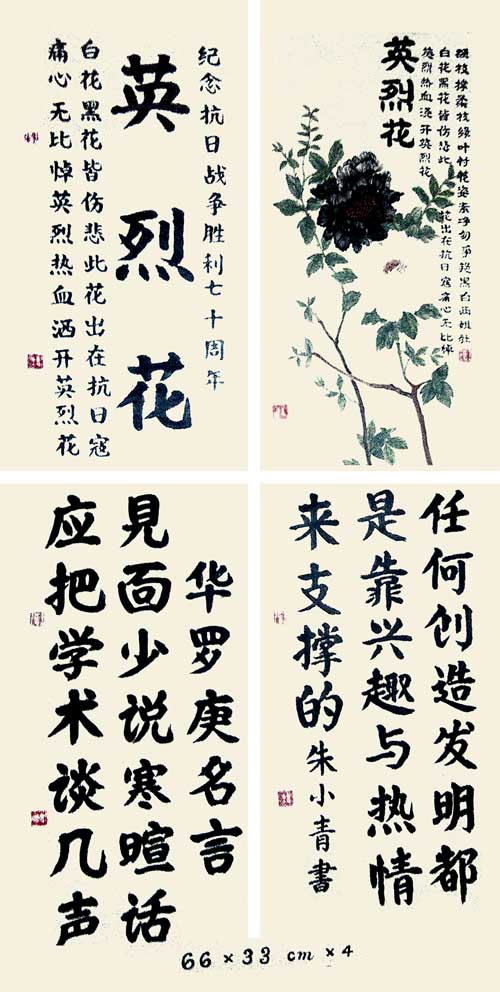 纪念抗日战争胜利七十周年
英烈花
白花黑花皆伤悲此花出在抗日寇
痛心无比悼英烈热血洒开英烈花
枝绿叶 黑白两姐
白花黑花皆伤悲此花出在抗日寇痛心无比悼
英烈热血浇开英烈花
英烈花
华罗庚名言
見面少说寒暄话
应把学术谈几声
任何创造发明都
是靠兴趣与热情
来支撑的朱小青書
66×33 cm×4